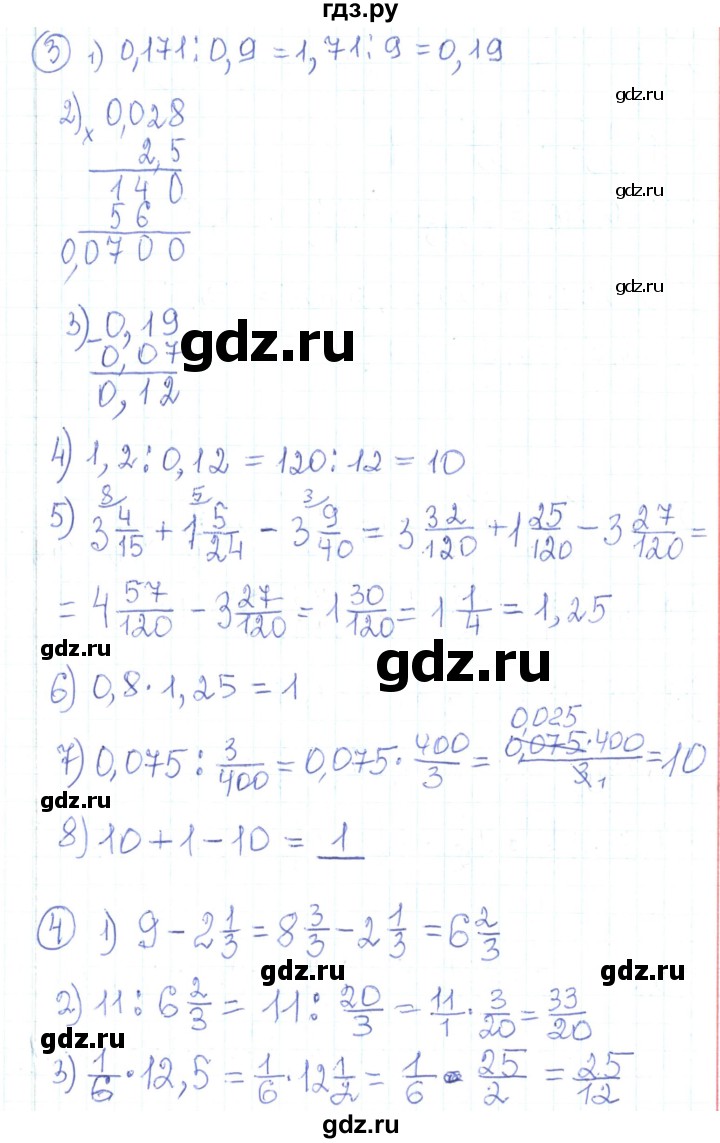 гдз.ру
③ 1) 0,171 : 0,9 = 1,71 : 9 = 0,19
gdz.ru
2) × 0,028
2,5
140
gdz.ru
56
0,0700
gdz.ru
3) - 0,19
gdz.ru
0,07
0,12
4) 1,2 : 0,12 = 120 : 12 = 10
5) 3 4/15 (8 + 1 5/24 (5 - 3 9/40 (3 = 3 32/120 + 1 25/120 - 3 27/120 =
= 4 57/120 - 3 27/120 = 1 30/120 = 1 1/4 = 1,25
gdz.ru
gdz.ru
6) 0,8 · 1,25 = 1
0,025
7) 0,075 : 3/400 = 0,075 · 400/3 = 0,075 · 400 / 3 1 = 10
gdz.ru
8) 10 + 1 - 10 = 1
④ 1) 9 - 2 1/3 = 8 3/3 - 2 1/3 = 6 2/3
gdz.ru
gdz.ru
2) 11 : 6 2/3 = 11 : 20/3 = 11/1 · 3/20 = 33/20
gdz.ru
3) 1/6 · 12,5 = 1/6 · 12 1/2 = 1/6 · 25/2 = 25/12
gdz.ru